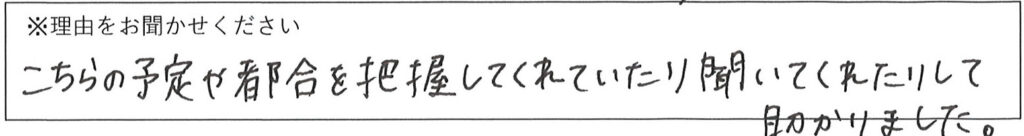 ※理由をお聞かせください
こちらの予定や都合を把握してくれていたり聞いてくれたりして
助かりました。